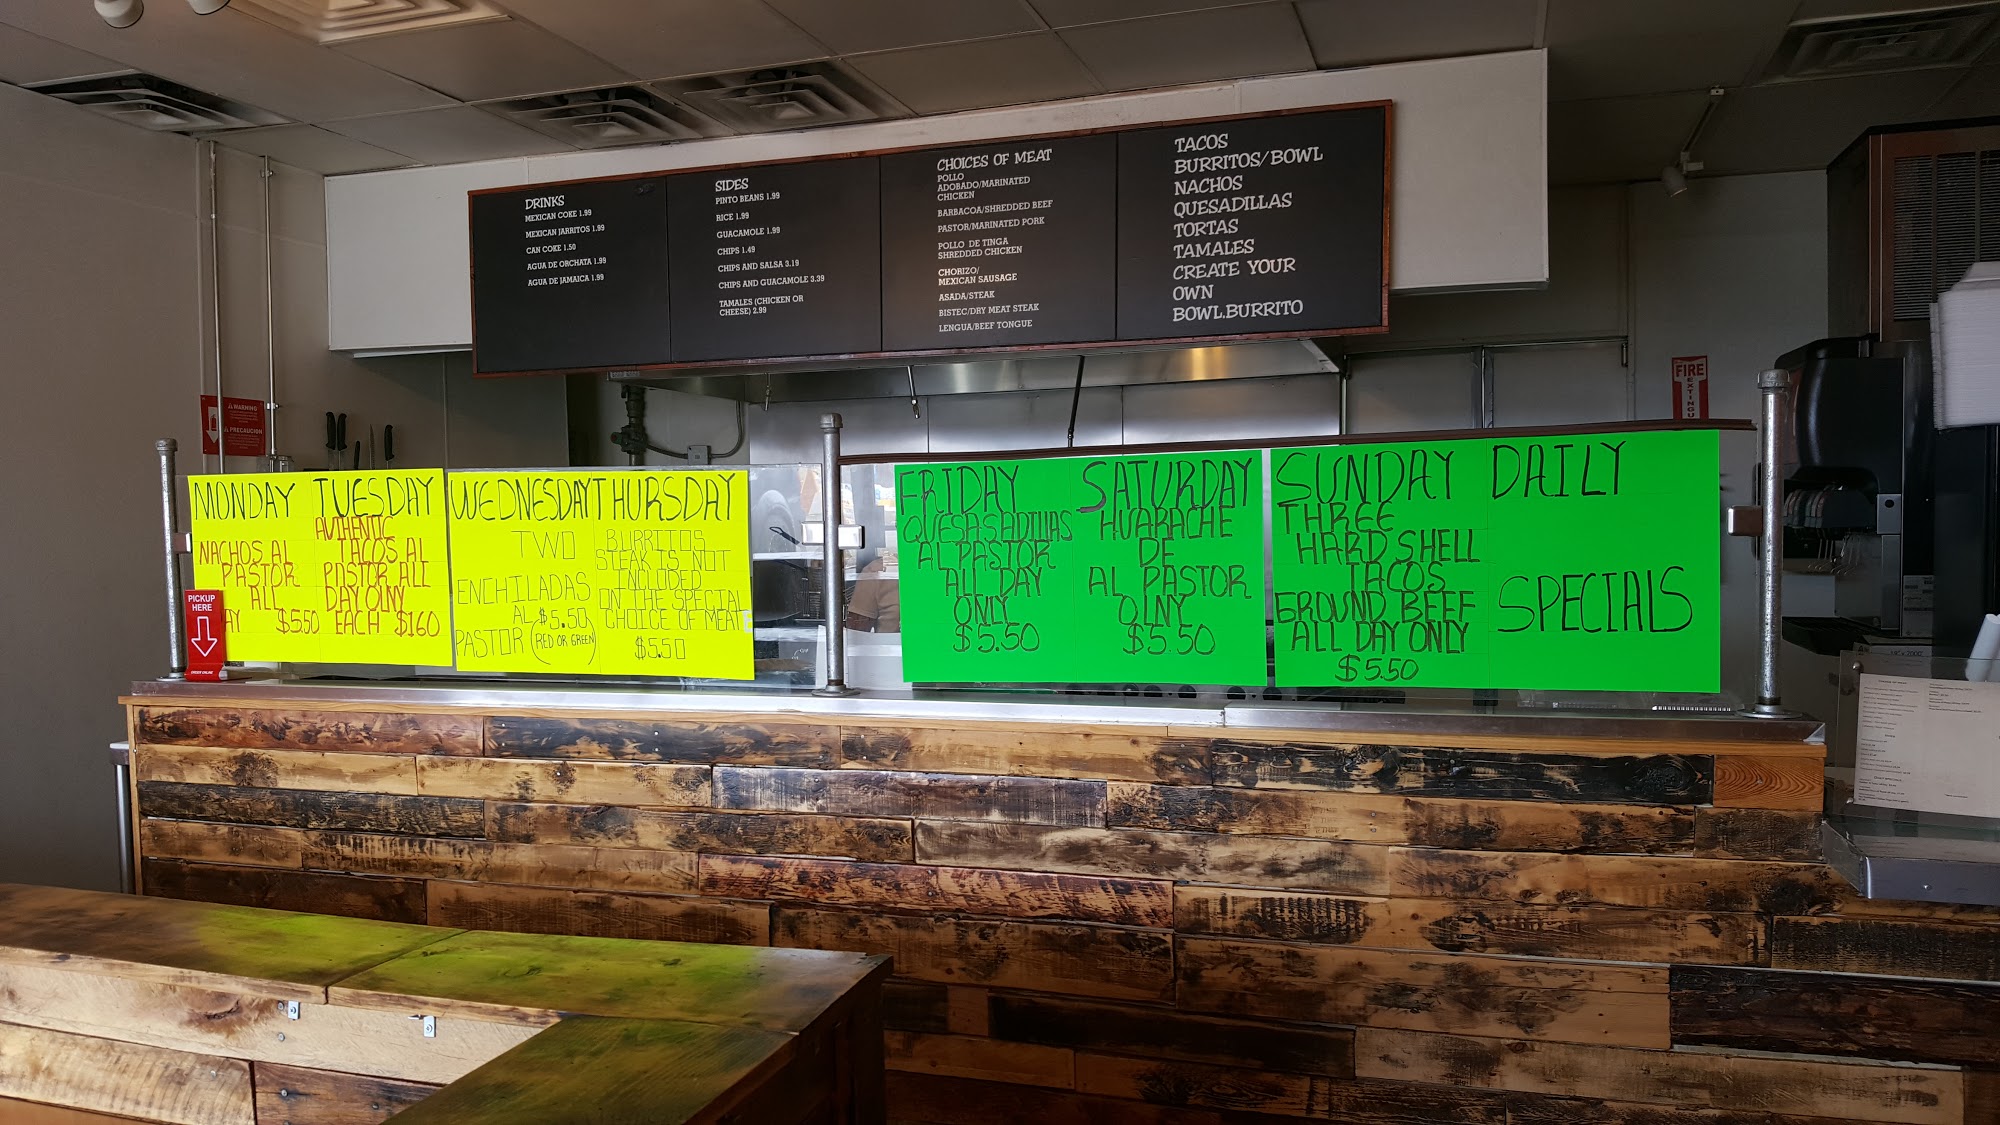 DRINKS
MEXICAN COKE 1.99
MEXICAN JARRITOS 1.99
CAN COKE 1.50
AGUA DE ORCHATA 1.99
AGUA DE JAMAICA 1.99
SIDES
PINTO BEANS 1.99
RICE 1.99
GUACAMOLE 1.99
CHIPS 1.49
CHIPS AND SALSA 3.19
CHIPS AND GUACAMOLE 3.39
TAMALES (CHICKEN OR
CHEESE) 2.99
CHOICES OF MEAT
POLLO
ADOBADO/MARINATED
CHICKEN
BARBACOA/SHREDDED BEEF
PASTOR/MARINATED PORK
POLLO DE TINGA
SHREDDED CHICKEN
CHORIZO/
MEXICAN SAUSAGE
ASADA/STEAK
BISTEC/DRY MEAT STEAK
LENGUA/BEEF TONGUE
TACOS
BURRITOS/BOWL
NACHOS
QUESADILLAS
TORTAS
TAMALES
CREATE YOUR
OWN
BOWL.BURRITO
WARNING
PRECAUCION
FIRE
EXTINGU
MONDAY
NACHOS AL
PASTOR
ALL
AY $5.50
TUESDAY
AUTHENTIC
TACOS AL
PASTOR ALL
DAY OLNY
EACH $160
WEDNESDAY
TWO
ENCHILADAS
AL $5.50
PASTOR (RED OR GREEN)
THURSDAY
BURRITOS
STEAK IS NOT
INCLUDED
ON THE SPECIAL
CHOICE OF MEAT
$5.50
FRIDAY
QUESA-SADILLAS
AL PASTOR
ALL DAY
ONLY
$5.50
SATURDAY
HUARACHE
DE
AL PASTOR
OLNY
$5.50
SUNDAY
THREE
HARD SHELL
TACOS
GROUND BEEF
ALL DAY ONLY
$5.50
DAILY
SPECIALS
PICKUP
HERE
ORDER ONLINE